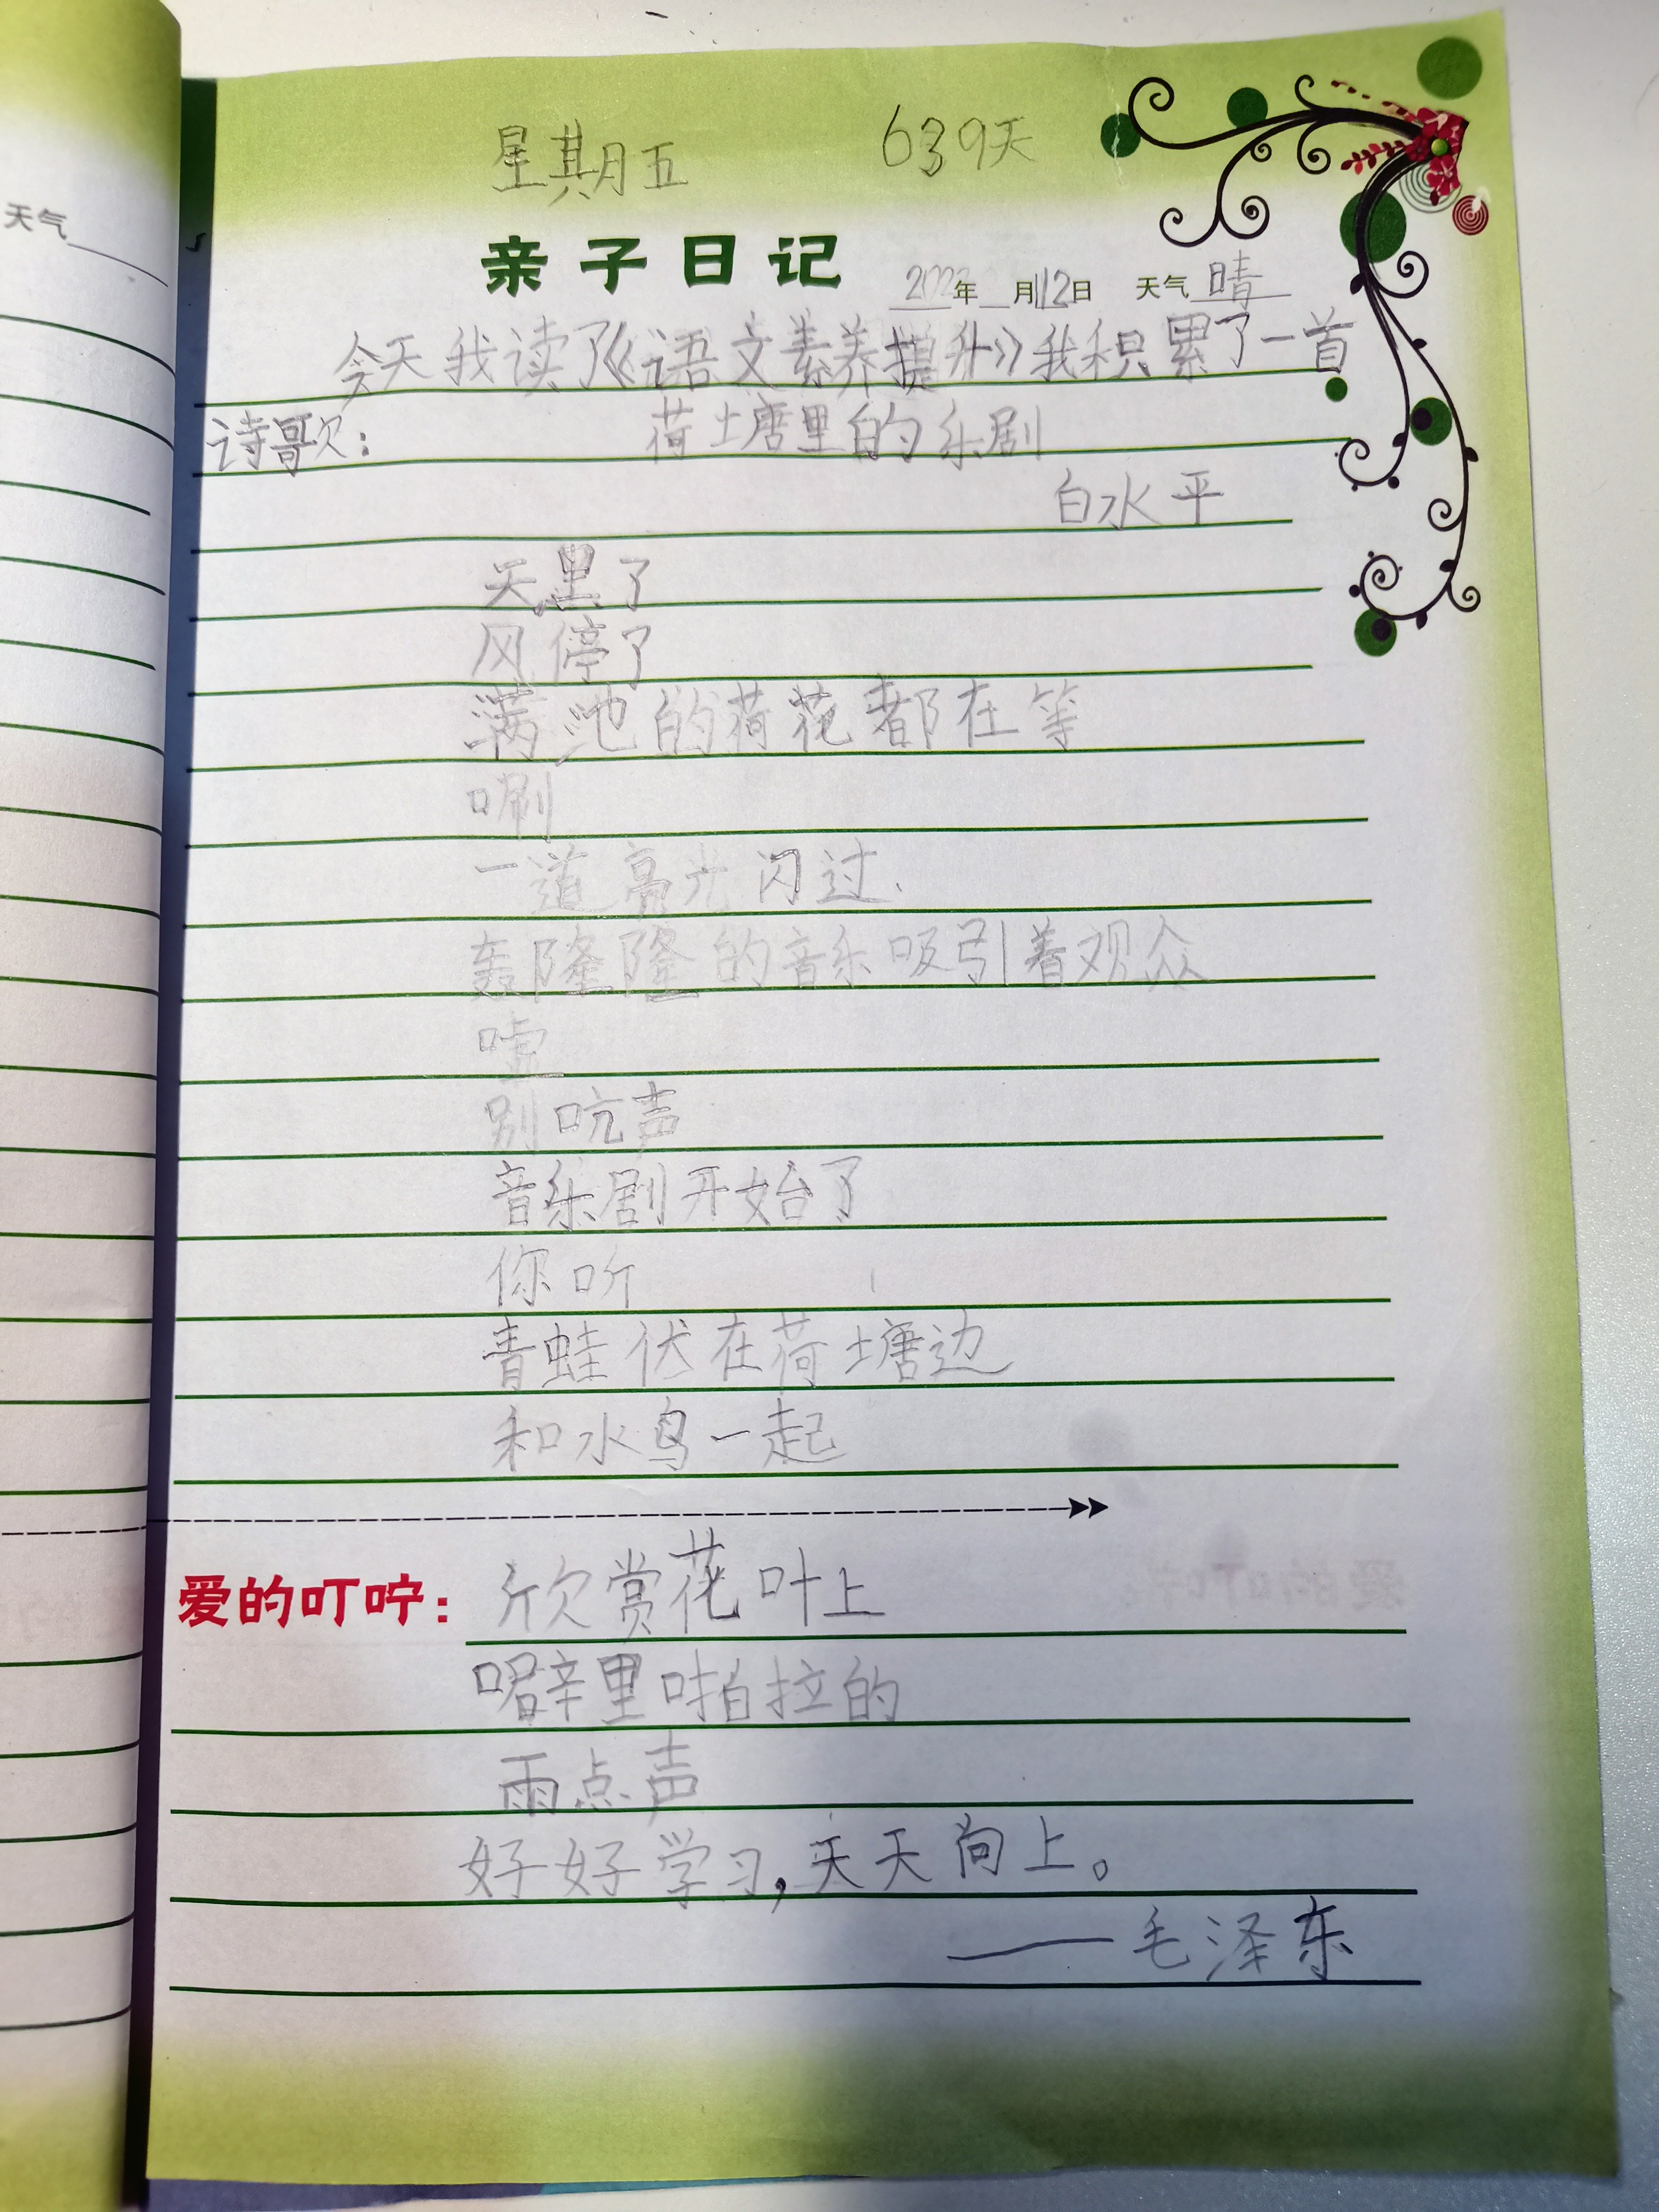 星期五 639天
天气
亲子日记 年 月12日 天气 晴
今天我读了《语文素养提升》我积累了一首
诗歌: 荷塘里的乐剧
白水平
天黑了
风停了
满池的荷花都在等
唰
一道亮光闪过.
轰隆隆的音乐吸引着观众
嘘
别吭声
音乐剧开始了
你听
青蛙伏在荷塘边
和水鸟一起
爱的叮咛: 欣赏花叶上
噼里啪拉的
雨点声
好好学习,天天向上。
——毛泽东